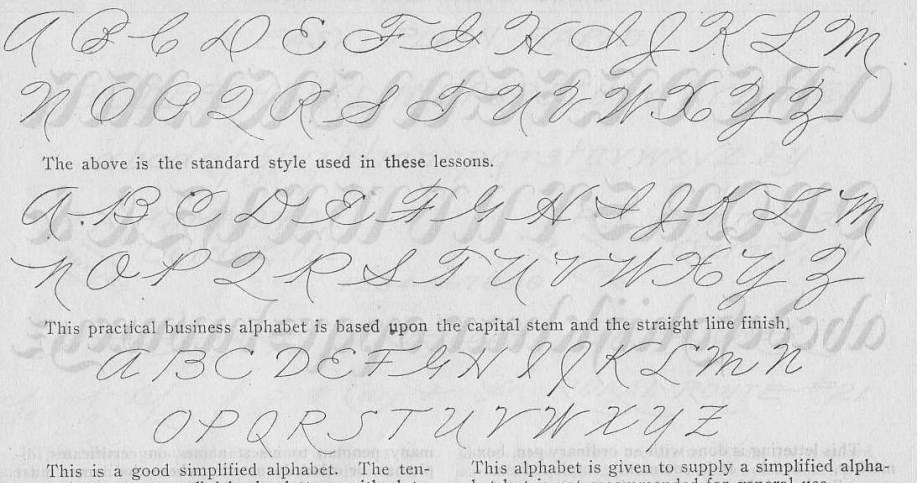 A B C D E F G H I J K L M
N O P Q R S T U V W X Y Z
The above is the standard style used in these lessons.
A B C D E F G H I J K L M
N O P Q R S T U V W X Y Z
This practical business alphabet is based upon the capital stem and the straight line finish.
A B C D E F G H I J K L M N
O P Q R S T U V W X Y Z
This is a good simplified alphabet. The ten-
This alphabet is given to supply a simplified alpha-